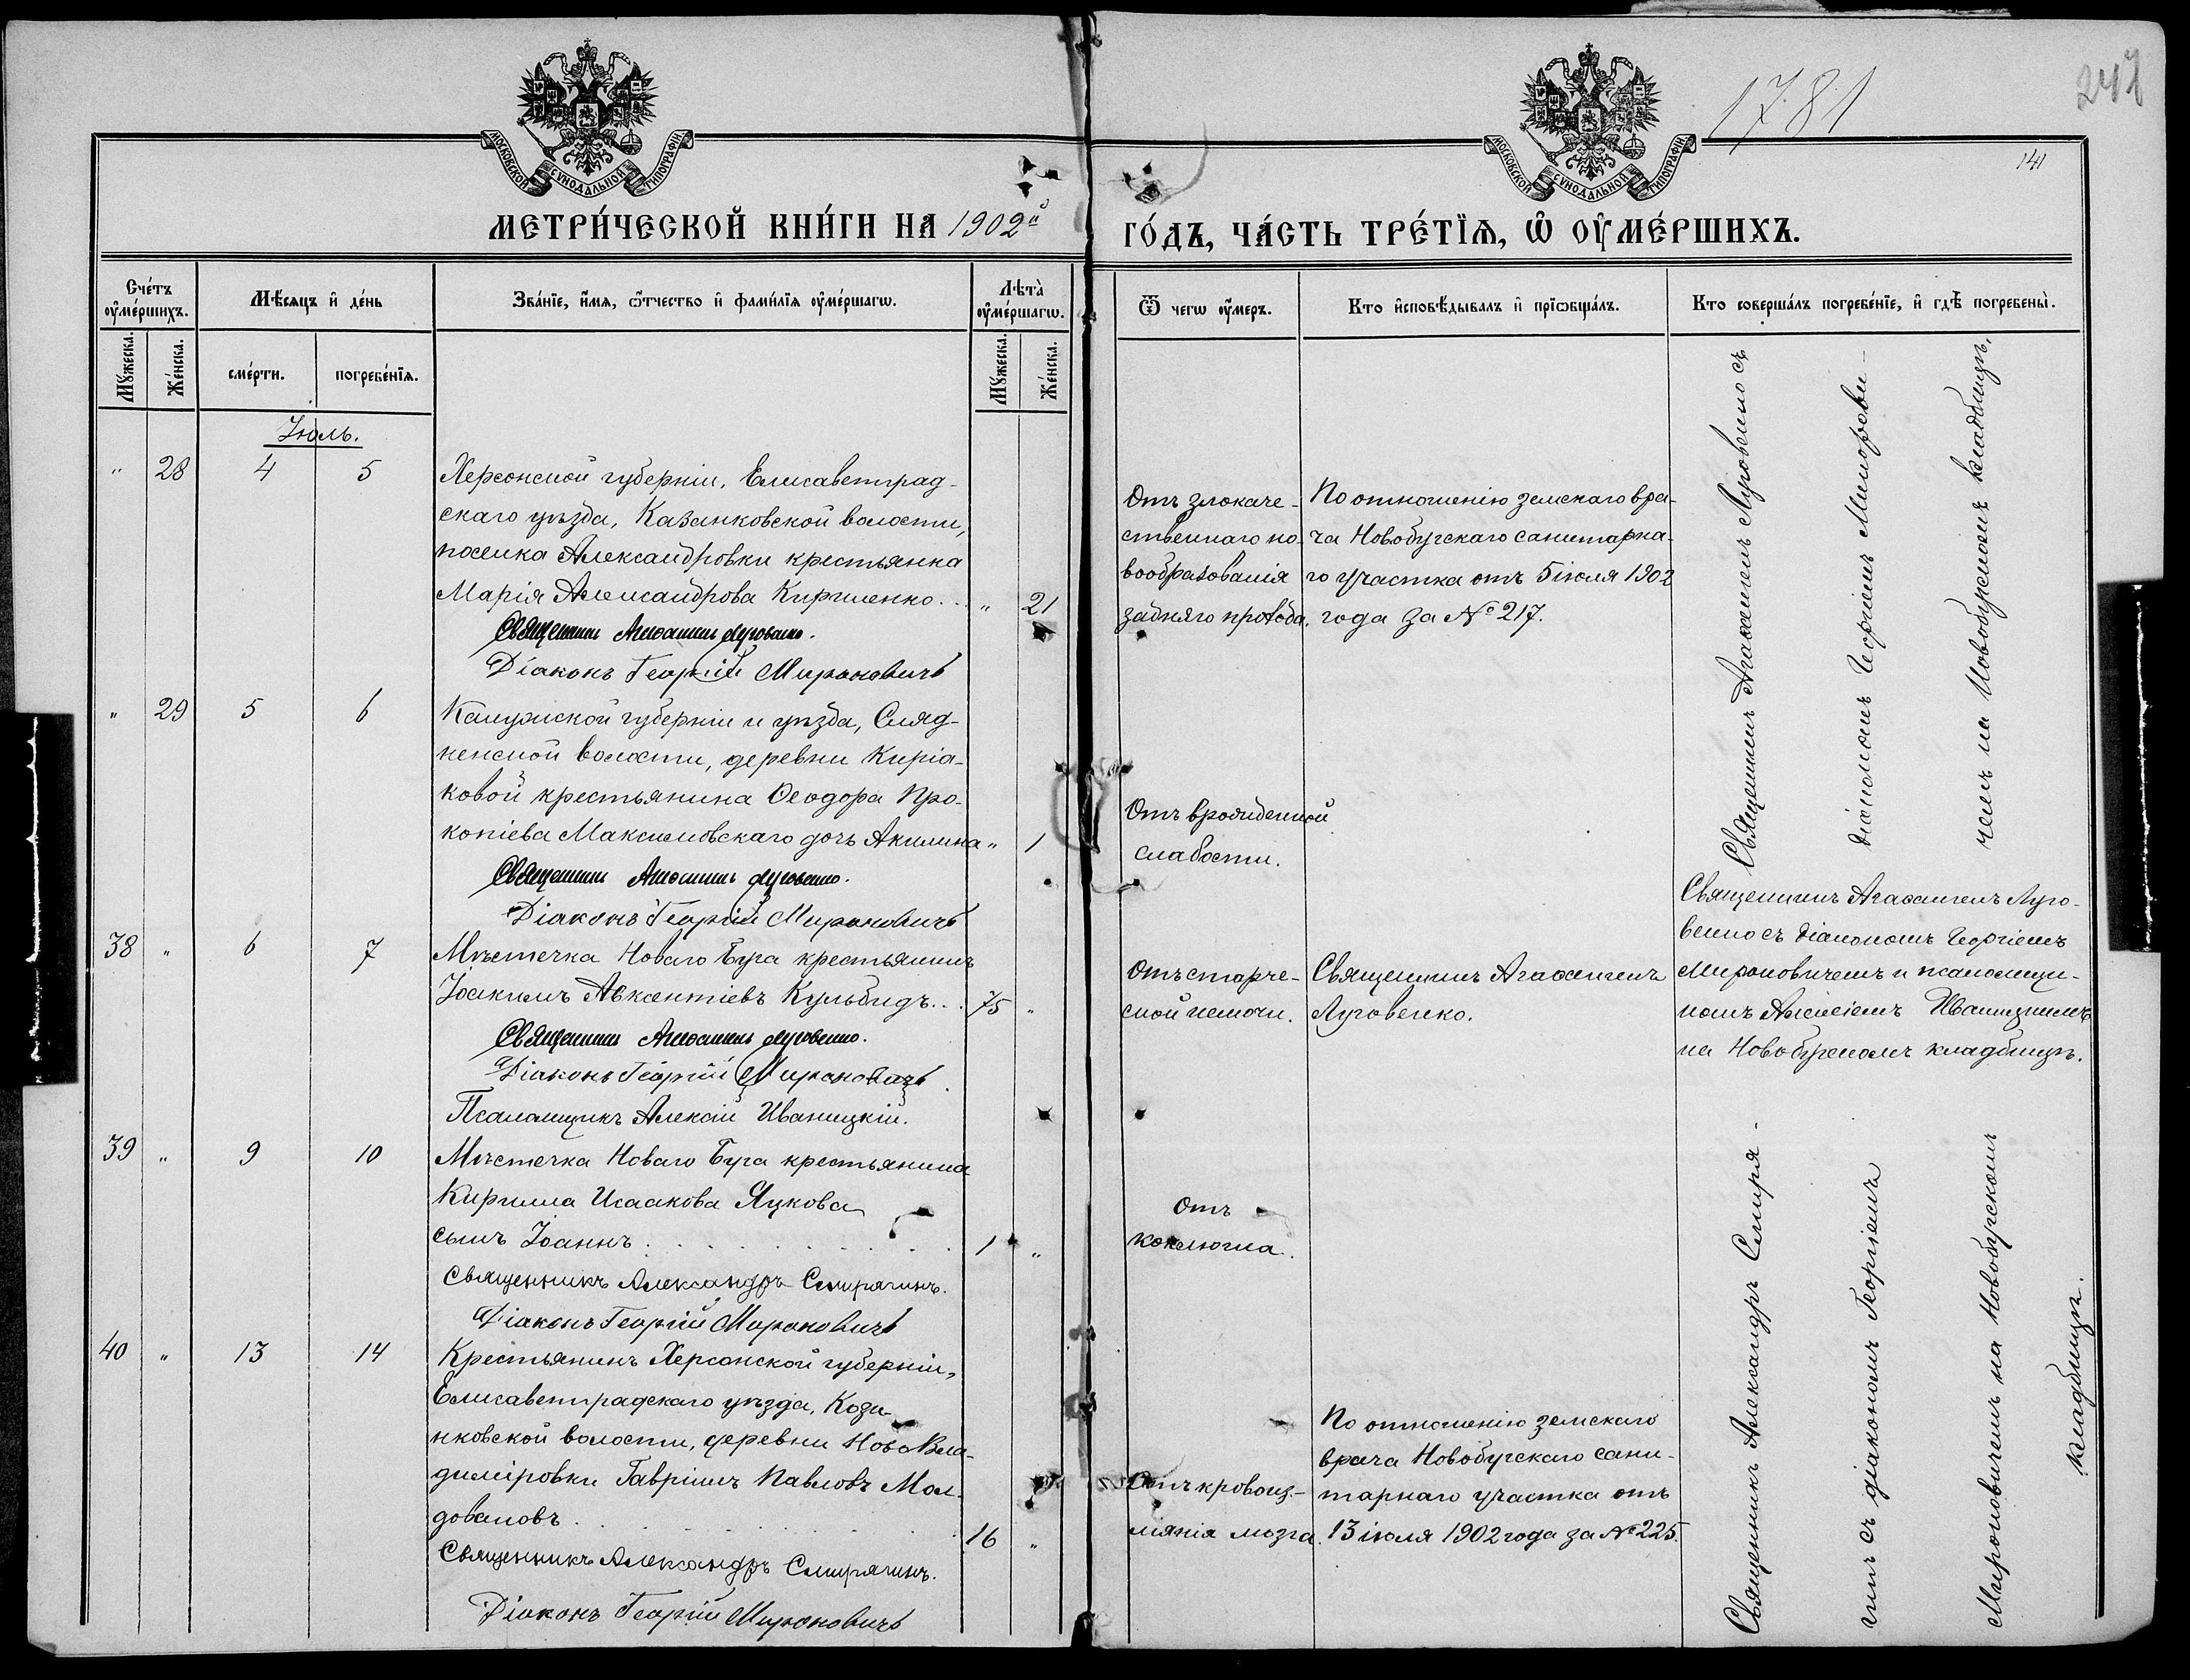 1781
247
141
МОСКОВСКОЙ СѴНОДАЛЬНОЙ ТИПОГРАФІИ
МОСКОВСКОЙ СѴНОДАЛЬНОЙ ТИПОГРАФІИ
МЕТРИ́ЧЕСКОЙ КНИ́ГИ НА 1902й
ГО́ДЪ, ЧА́СТЬ ТРЕ́ТЇѦ, Ѡ҆ ОУ҆МЕ́РШИХЪ.
Сче́тъ оу҆ме́ршихъ.
Мѣ́сяцъ и҆ де́нь
Зва́нїе, и҆́мѧ, ѻ҆́тчество и҆ фами́лїѧ оу҆ме́ршагѡ.
Лѣта̀ оу҆ме́ршагѡ.
Ѿ чегѡ̀ оу҆́меръ.
Кто̀ и҆сповѣ́дывалъ и҆ прїѡбща́лъ.
Кто̀ соверша́лъ погребе́нїе, и҆ гдѣ̀ погребены̀.
Му́жеска.
Же́нска.
сме́рти.
погребе́нїѧ.
Му́жеска.
Же́нска.
Іюль.
" 28 4 5
Херсонской губерніи, Елисаветград-
скаго уѣзда, Казанковской волости,
поселка Александровки крестьянка
Марія Александрова Кириленко... " 21
Священникъ Агаѳангелъ Луговенко.
Діаконъ Георгій Мироновичъ
Отъ злокаче-
ственнаго но-
вообразованія
задняго прохода.
По отношенію земскаго вра-
ча Новобугскаго санитарна-
го участка отъ 5 іюля 1902
года за № 217.
Священникъ Агаѳангелъ Луговенко съ
діакономъ Георгіемъ Миронови-
чемъ на Новобугскомъ кладбищѣ.
" 29 5 6
Калужской губерніи и уѣзда,
волости, деревни Киріа-
ковой крестьянина Ѳеодора Про-
копіева Максимовскаго дочь Акилина " 1
Священникъ Агаѳангелъ Луговенко.
Діаконъ Георгій Мироновичъ
Отъ врожденной
слабости.
38 " 6 7
Мѣстечка Новаго Буга крестьянинъ
Іоакимъ Авксентіевъ Кульбидъ... 75 "
Священникъ Агаѳангелъ Луговенко.
Діаконъ Георгій Мироновичъ.
Псаломщикъ Алексій Иваницкій.
Отъ старче-
ской немочи.
Священникъ Агаѳангелъ
Луговенко.
Священникъ Агаѳангелъ Луго-
венко съ діакономъ Георгіемъ
Мироновичемъ и псаломщи-
комъ Алексіемъ Иваницкимъ
на Новобугскомъ кладбищѣ.
39 " 9 10
Мѣстечка Новаго Буга крестьянина
Кирилла Исаакова Яцкова
сынъ Іоаннъ . . . . . . . . 1 "
Священникъ Александръ Смирягинъ.
Діаконъ Георгій Мироновичъ
Отъ
коклюша.
Священникъ Александръ Смиря-
гинъ съ діакономъ Георгіемъ
Мироновичемъ на Новобугскомъ
кладбищѣ.
40 " 13 14
Крестьянинъ Херсонской губерніи,
Елисаветградскаго уѣзда, Каза-
нковской волости, деревни НовоВла-
диміровки Гавріилъ Павловъ Мол-
довановъ . . . . . . . . 16 "
Священникъ Александръ Смирягинъ.
Діаконъ Георгій Мироновичъ
Отъ кровоиз-
ліянія мозга.
По отношенію земскаго
врача Новобугскаго сани-
тарнаго участка отъ
13 іюля 1902 года за № 225.